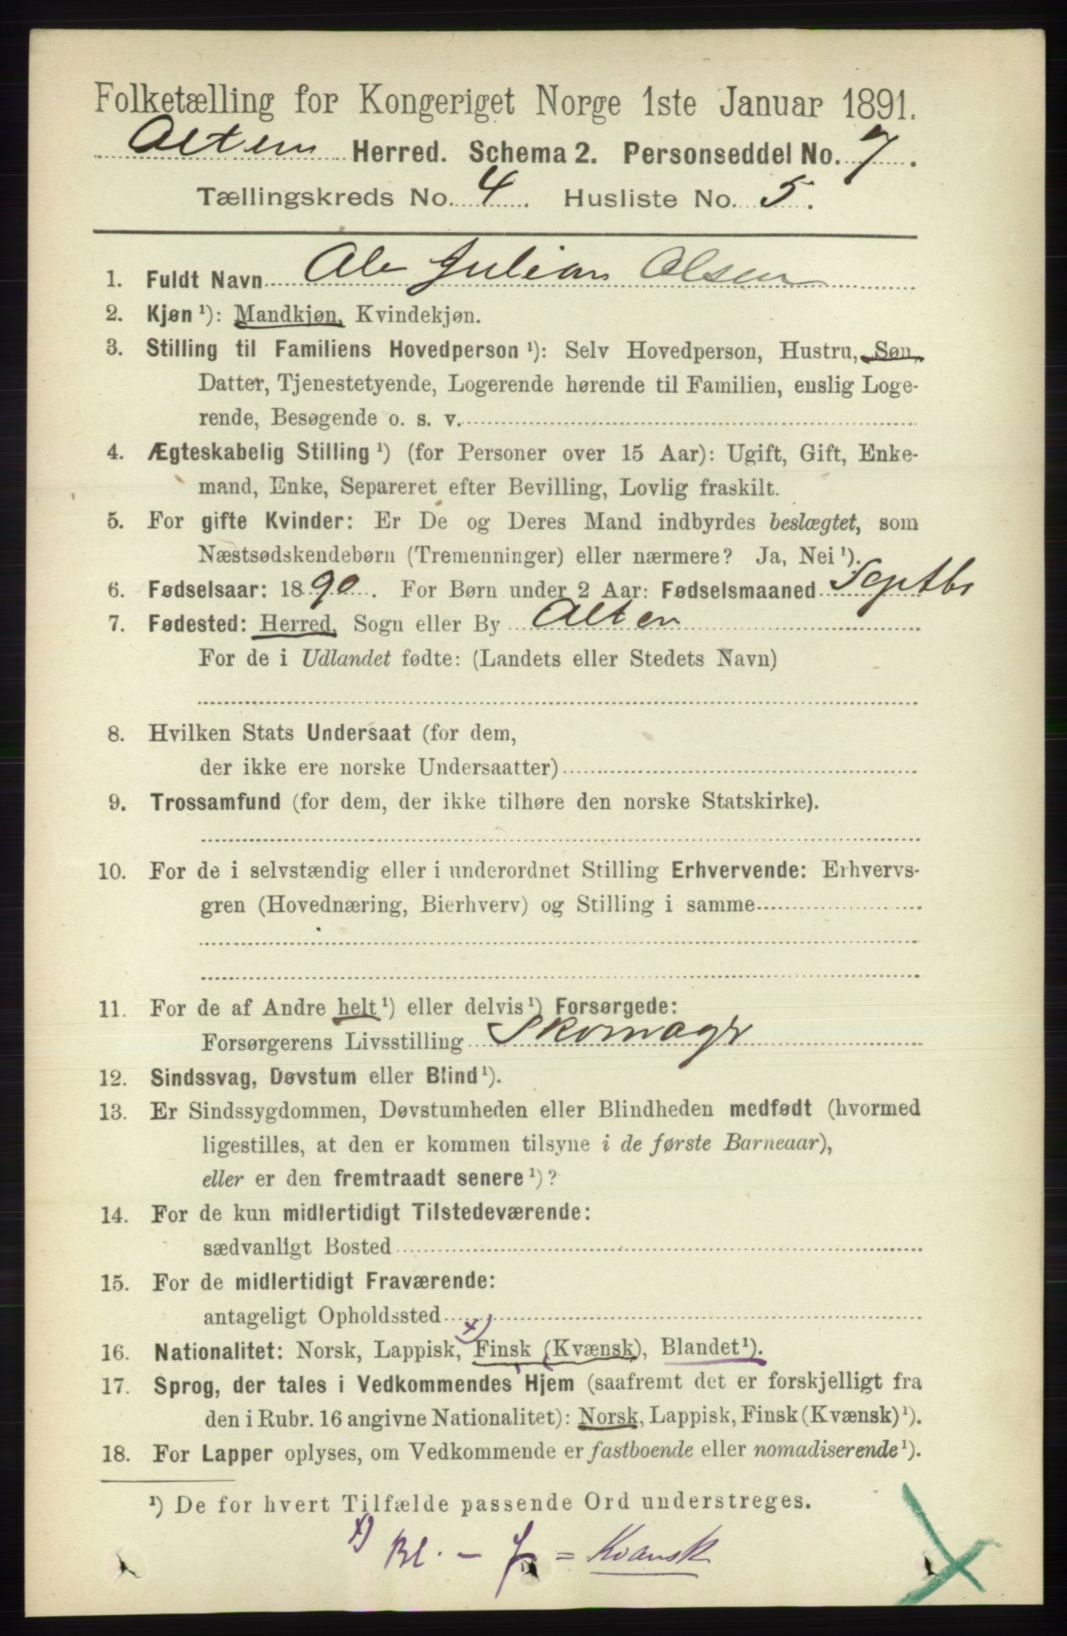 Folketælling for Kongeriget Norge 1ste Januar 1891.
Alten Herred. Schema 2. Personseddel No. 7.
Tællingskreds No. 4. Husliste No. 5.
1. Fuldt Navn Ole Julian Olsen
2. Kjøn ¹): Mandkjøn, Kvindekjøn.
3. Stilling til Familiens Hovedperson ¹): Selv Hovedperson, Hustru, Søn,
Datter, Tjenestetyende, Logerende hørende til Familien, enslig Loge-
rende, Besøgende o. s. v.
4. Ægteskabelig Stilling ¹) (for Personer over 15 Aar): Ugift, Gift, Enke-
mand, Enke, Separeret efter Bevilling, Lovlig fraskilt.
5. For gifte Kvinder: Er De og Deres Mand indbyrdes beslægtet, som
Næstsødskendebørn (Tremenninger) eller nærmere? Ja, Nei ¹).
6. Fødselsaar: 1890. For Børn under 2 Aar: Fødselsmaaned Septbr
7. Fødested: Herred, Sogn eller By Alten
For de i Udlandet fødte: (Landets eller Stedets Navn)
8. Hvilken Stats Undersaat (for dem,
der ikke ere norske Undersaatter)
9. Trossamfund (for dem, der ikke tilhøre den norske Statskirke).
10. For de i selvstændig eller i underordnet Stilling Erhvervende: Erhvervs-
gren (Hovednæring, Bierhverv) og Stilling i samme
11. For de af Andre helt ¹) eller delvis ¹) Forsørgede:
Forsørgerens Livsstilling Skomagr
12. Sindssvag, Døvstum eller Blind ¹).
13. Er Sindssygdommen, Døvstumheden eller Blindheden medfødt (hvormed
ligestilles, at den er kommen tilsyne i de første Barneaar),
eller er den fremtraadt senere ¹)?
14. For de kun midlertidigt Tilstedeværende:
sædvanligt Bosted
15. For de midlertidigt Fraværende:
antageligt Opholdssted
x)
16. Nationalitet: Norsk, Lappisk, Finsk (Kvænsk), Blandet ¹).
17. Sprog, der tales i Vedkommendes Hjem (saafremt det er forskjelligt fra
den i Rubr. 16 angivne Nationalitet): Norsk, Lappisk, Finsk (Kvænsk) ¹).
18. For Lapper oplyses, om Vedkommende er fastboende eller nomadiserende ¹).
¹) De for hvert Tilfælde passende Ord understreges.
x) Bl. – f = Kvænsk